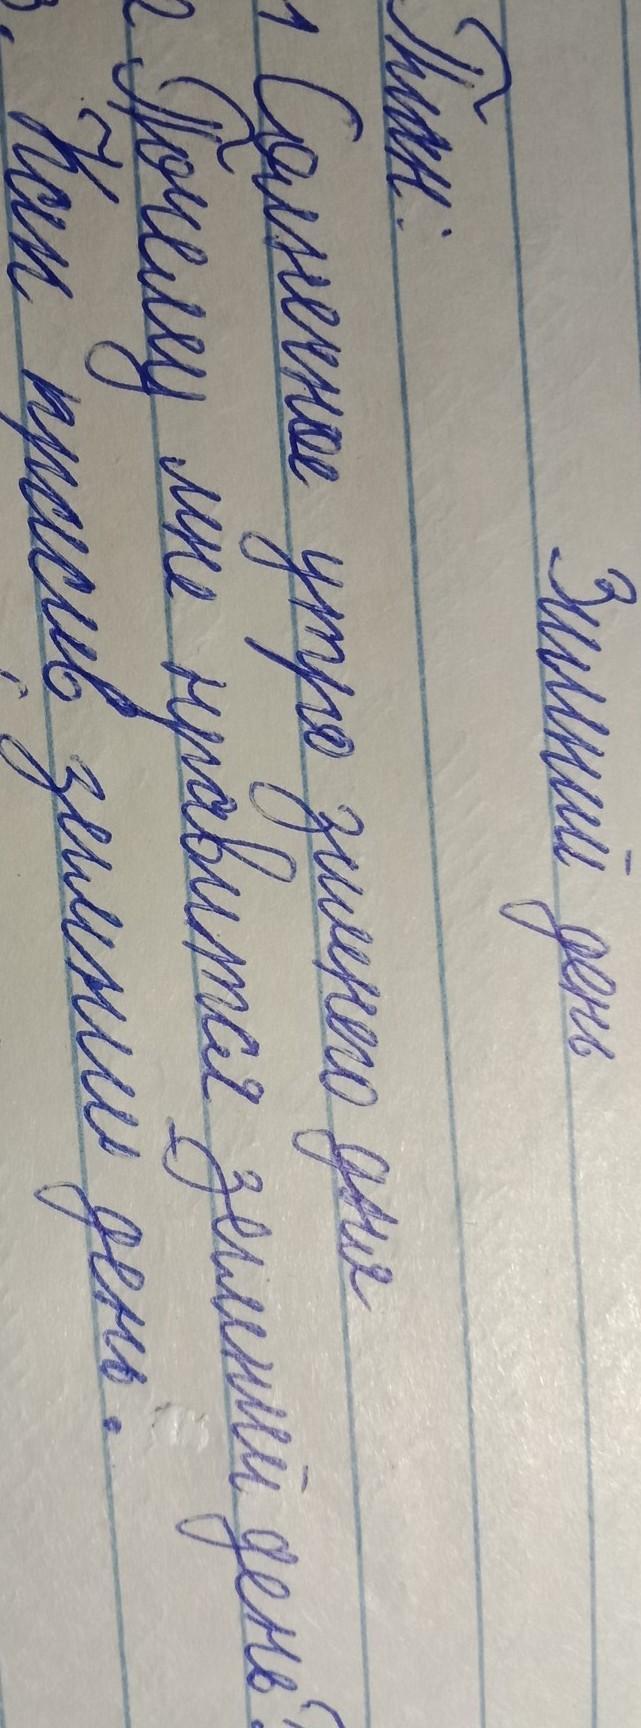 Зимний день
План:
1 Солнечное утро зимнего дня
2 Почему мне нравится зимний день?
3. Как красив зимний день.